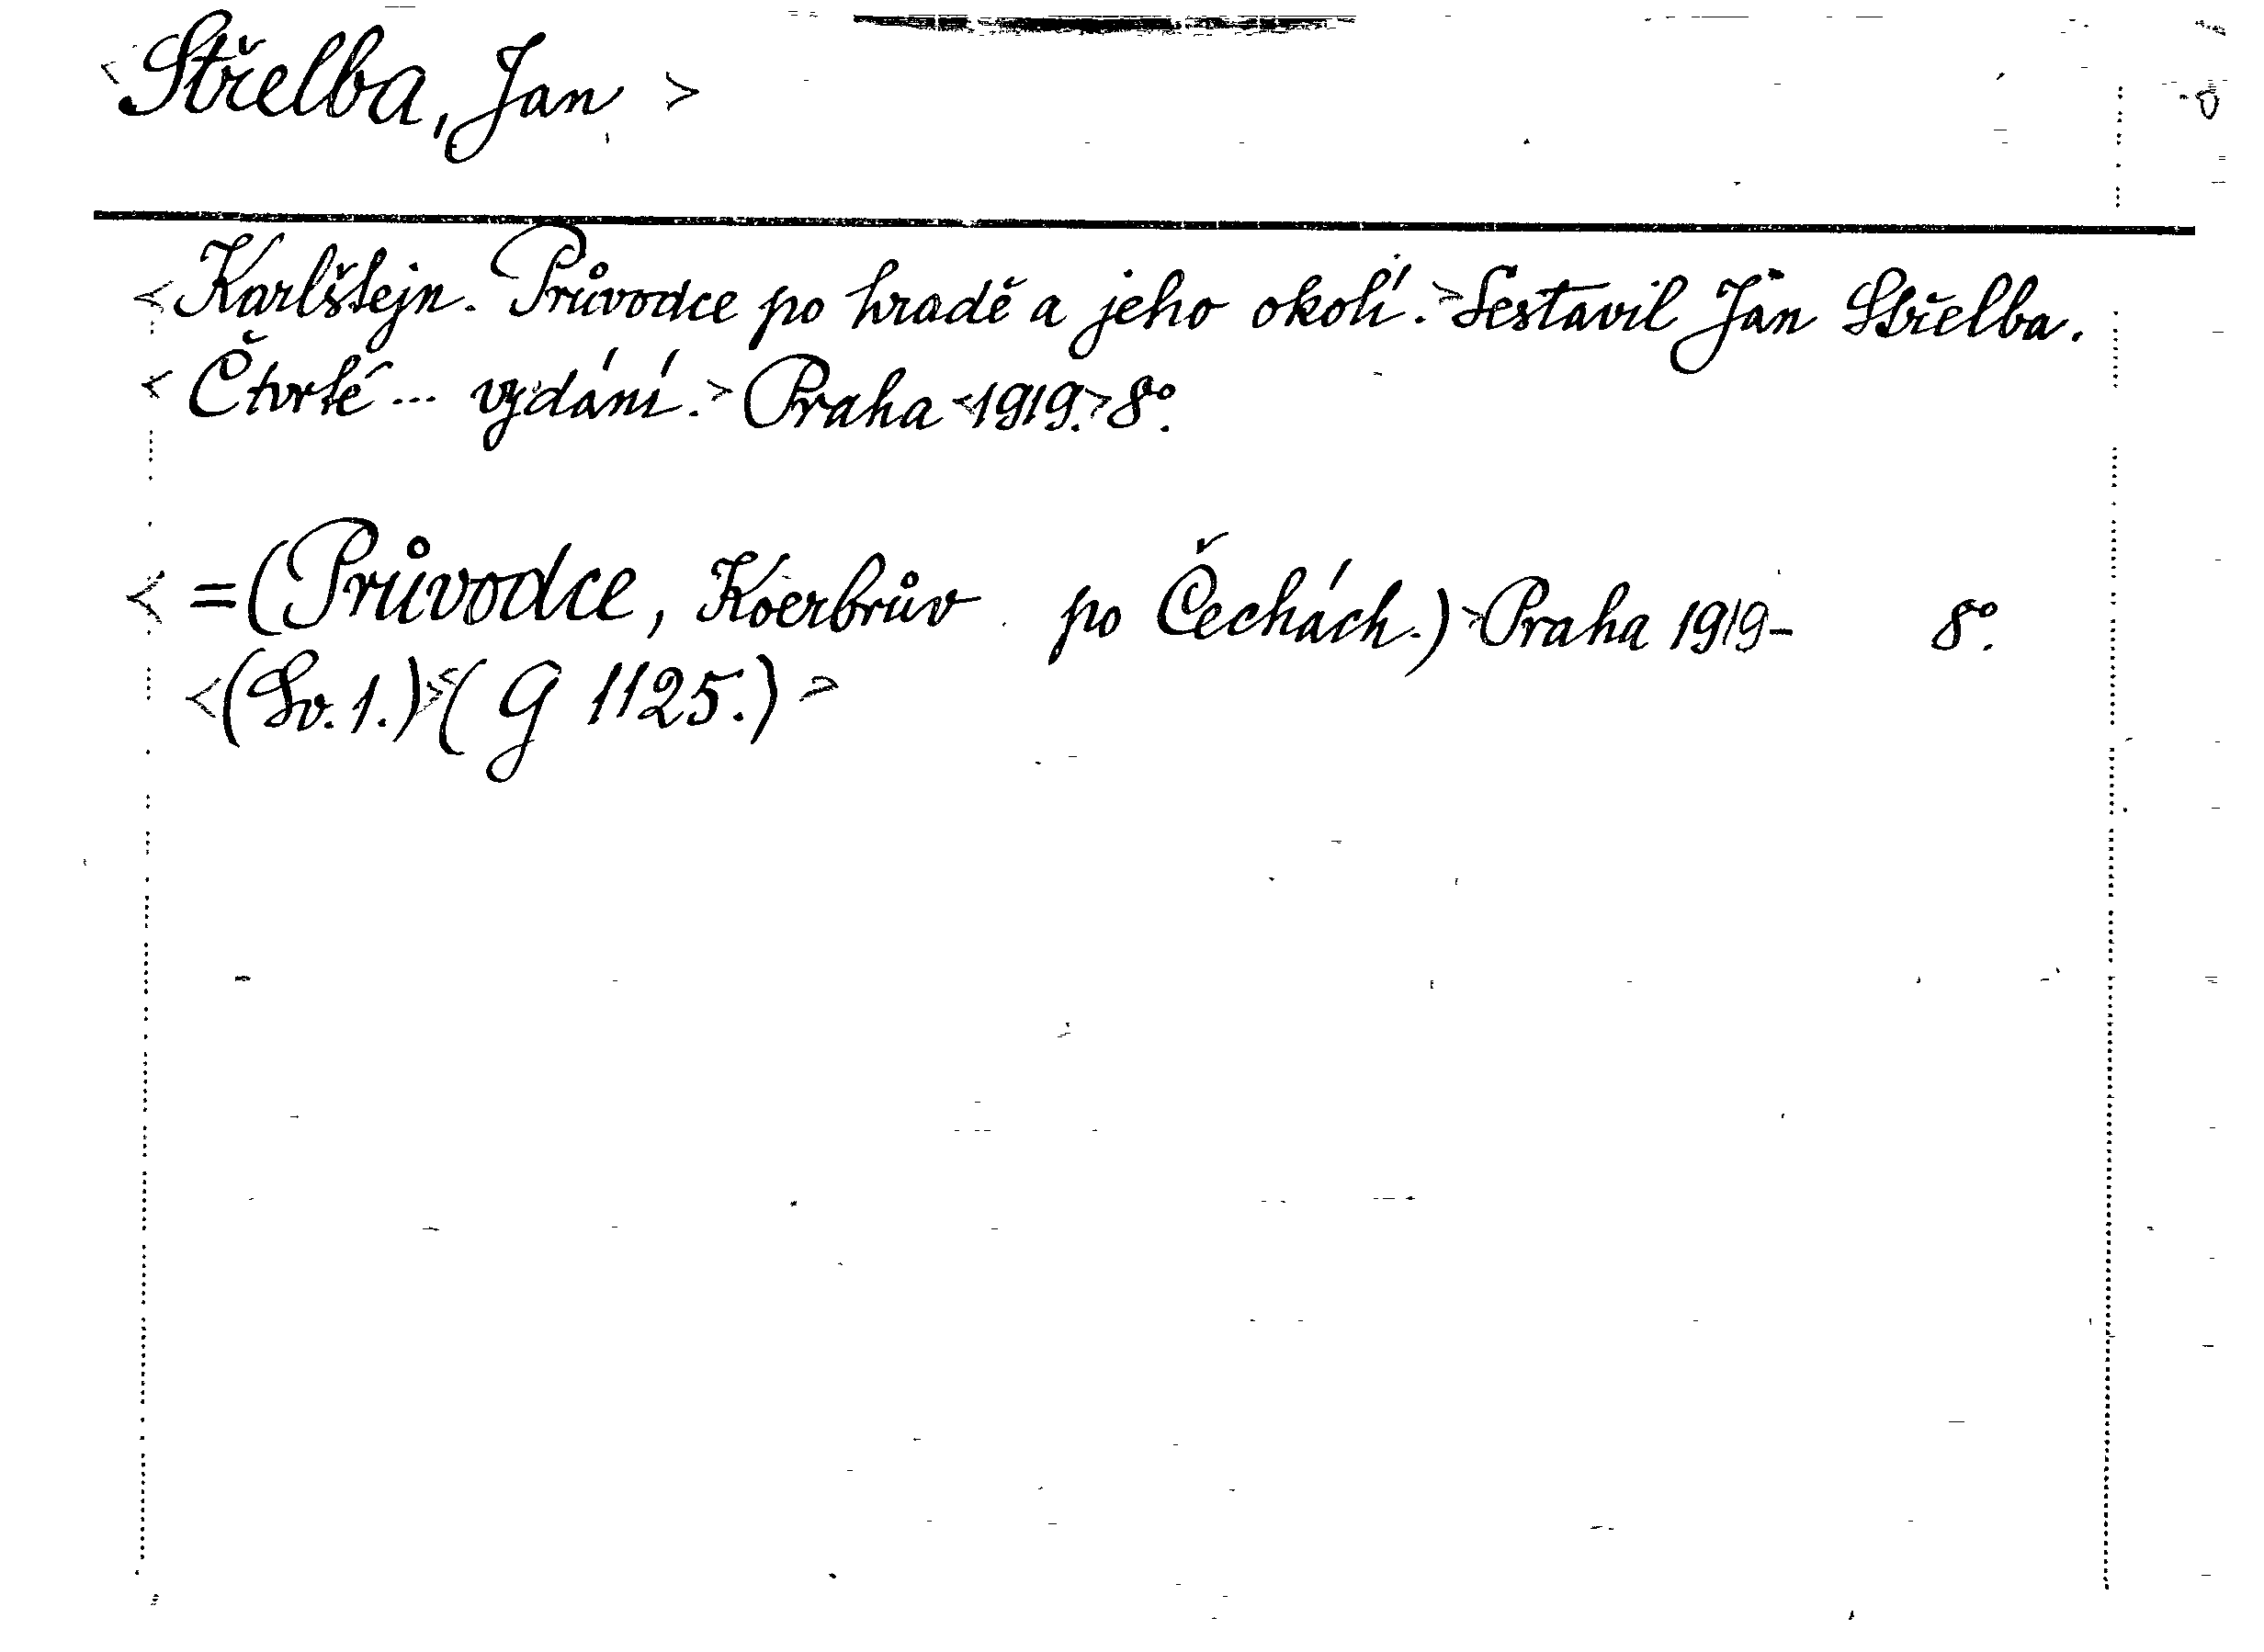 <Střelba, Jan>
<Karlštejn. Průvodce po hradě a jeho okolí.> Sestavil Jan Střelba.
<Čtvrté ... vydání.> Praha <1919.> 8°.
<=(Průvodce, Koerbrův po Čechách.)> Praha 1919- 8°.
<(Sv. 1.)><(G 1125.)>